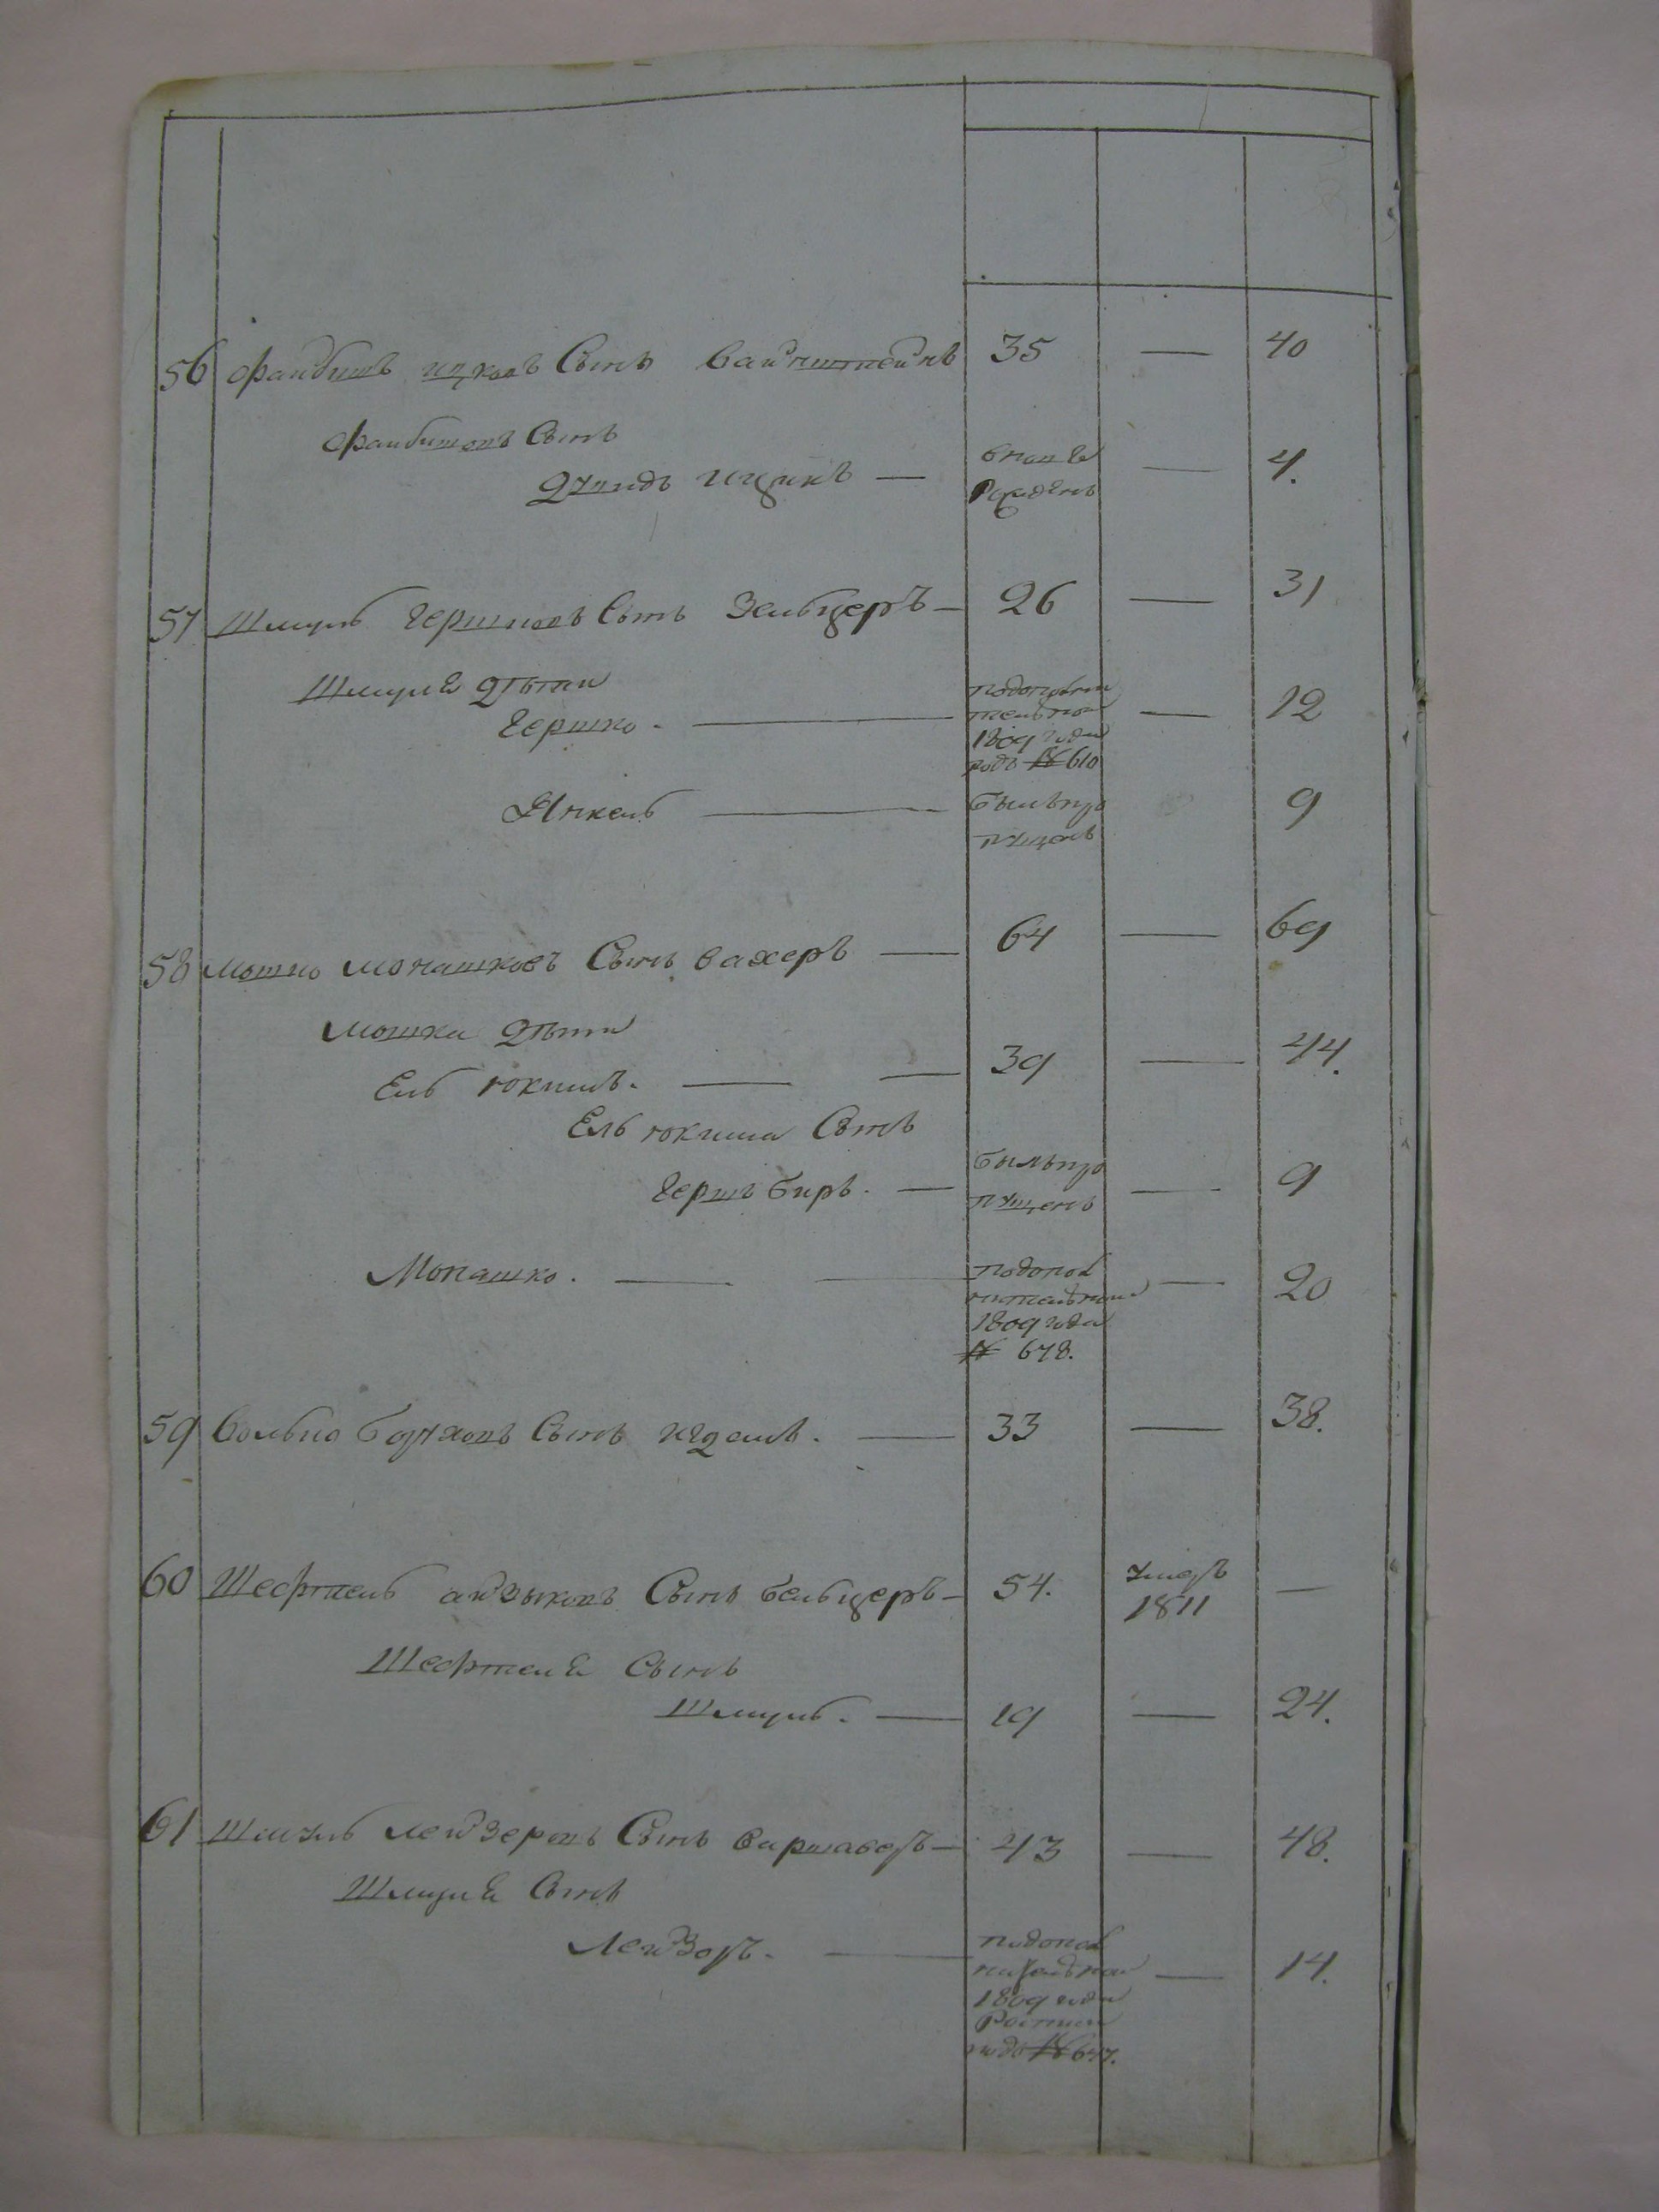 56 Файбишъ ицковъ Сынъ Вайнштейнъ 35 — 40
Файбишовъ Сынъ
Дувидъ Ицикъ — вновѣ — 4.
рожденъ
57 Шмуль Гершковъ Сынъ Зельцеръ — 26 — 31
Шмуля Дѣти
Гершко. — по дополни — 12
тельной
1809 года
подъ № 610
Янкель — былъ про 9
пущенъ
58 Мошко Монашковъ Сынъ Сахеръ — 64 — 69
Мошки Дѣти
Ель юкишъ. — — 39 — 44.
Ель юкиша Сынъ
Гершъ Биръ. — былъ про — 9
пущенъ
Монашко. — по допол — 20
нительной
1809 года
№ 678.
59 Волько Борухов Сынъ — 33 — 38.
60 Шефтель айзыковъ Сынъ бельцеръ — 54. умеръ —
1811
Шефтеля Сынъ
Шмуль. — 19 — 24.
61 Шмуль лейзеровъ Сынъ Варшаверъ — 43 — 48.
Шмуля Сынъ
Лейзоръ. — по допол — 14.
нительной
1809 года
подъ № 647.